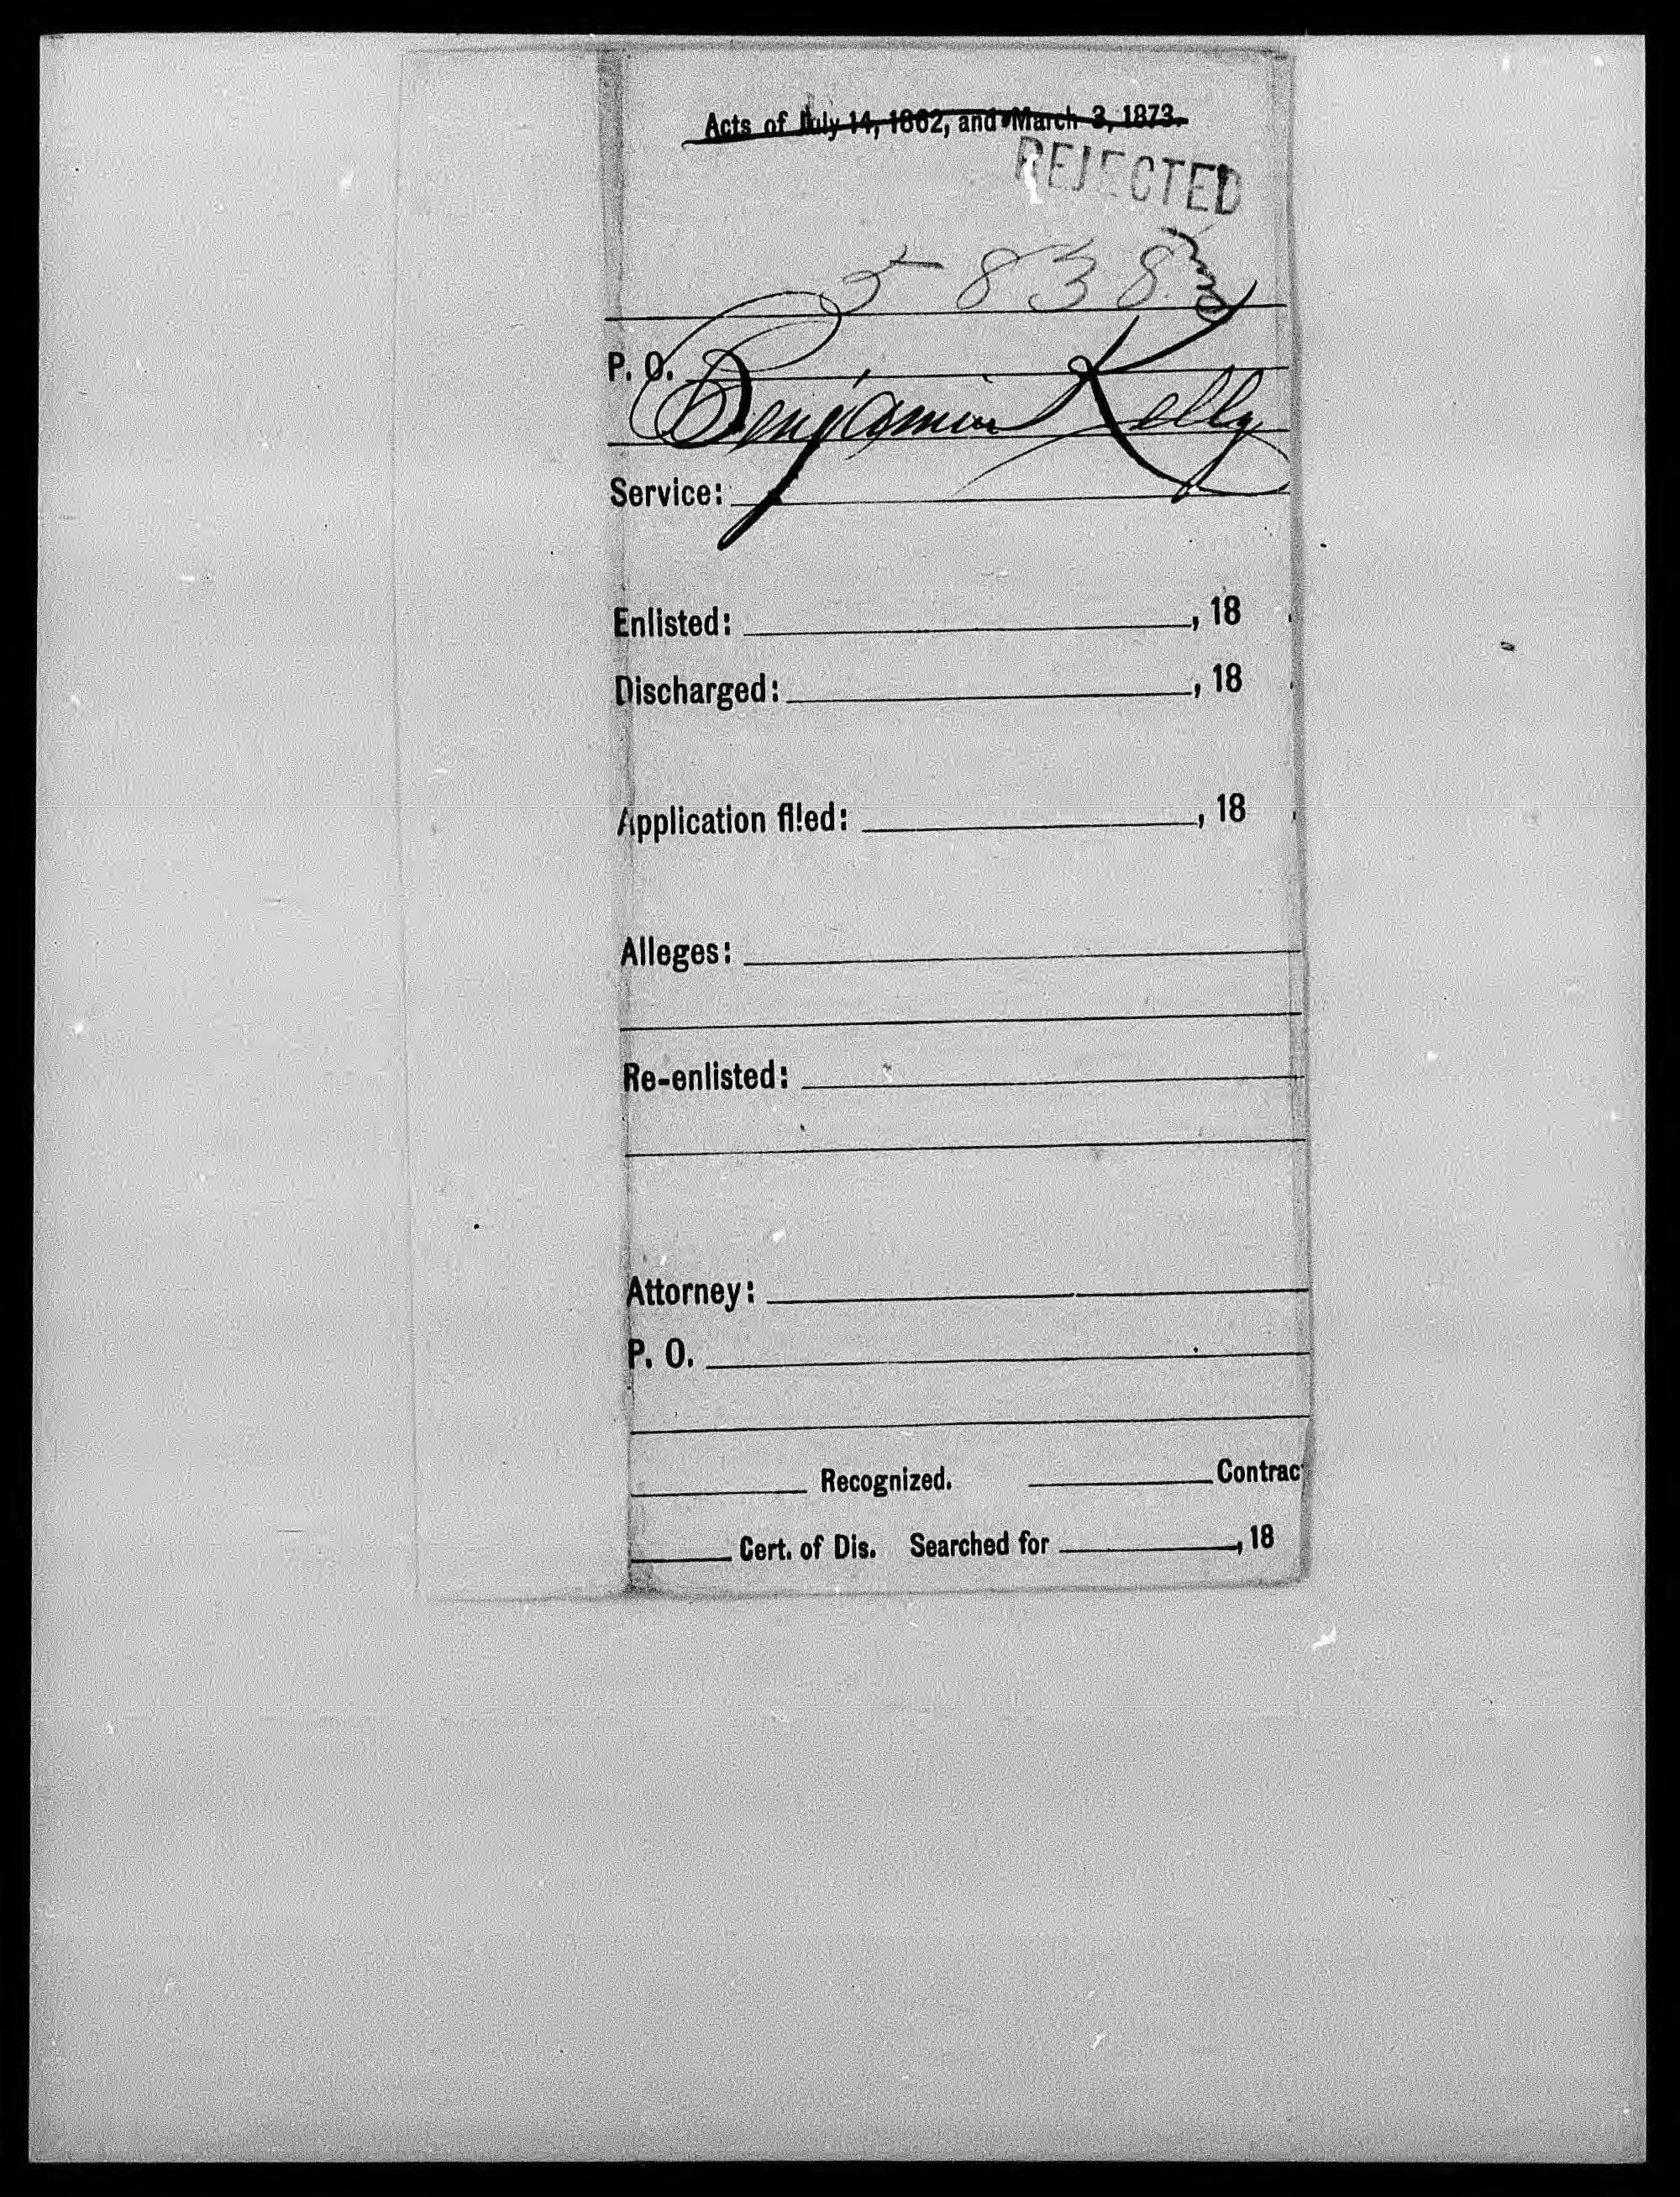 Acts of July 14, 1862, and March 3, 1873.
REJECTED
5838
P. O.
Benjamin Kelly
Service:
Enlisted: , 18 .
Discharged: , 18 .
Application filed: , 18 .
Alleges:
Re-enlisted:
Attorney:
P. O.
Recognized. Contract
Cert. of Dis. Searched for , 18